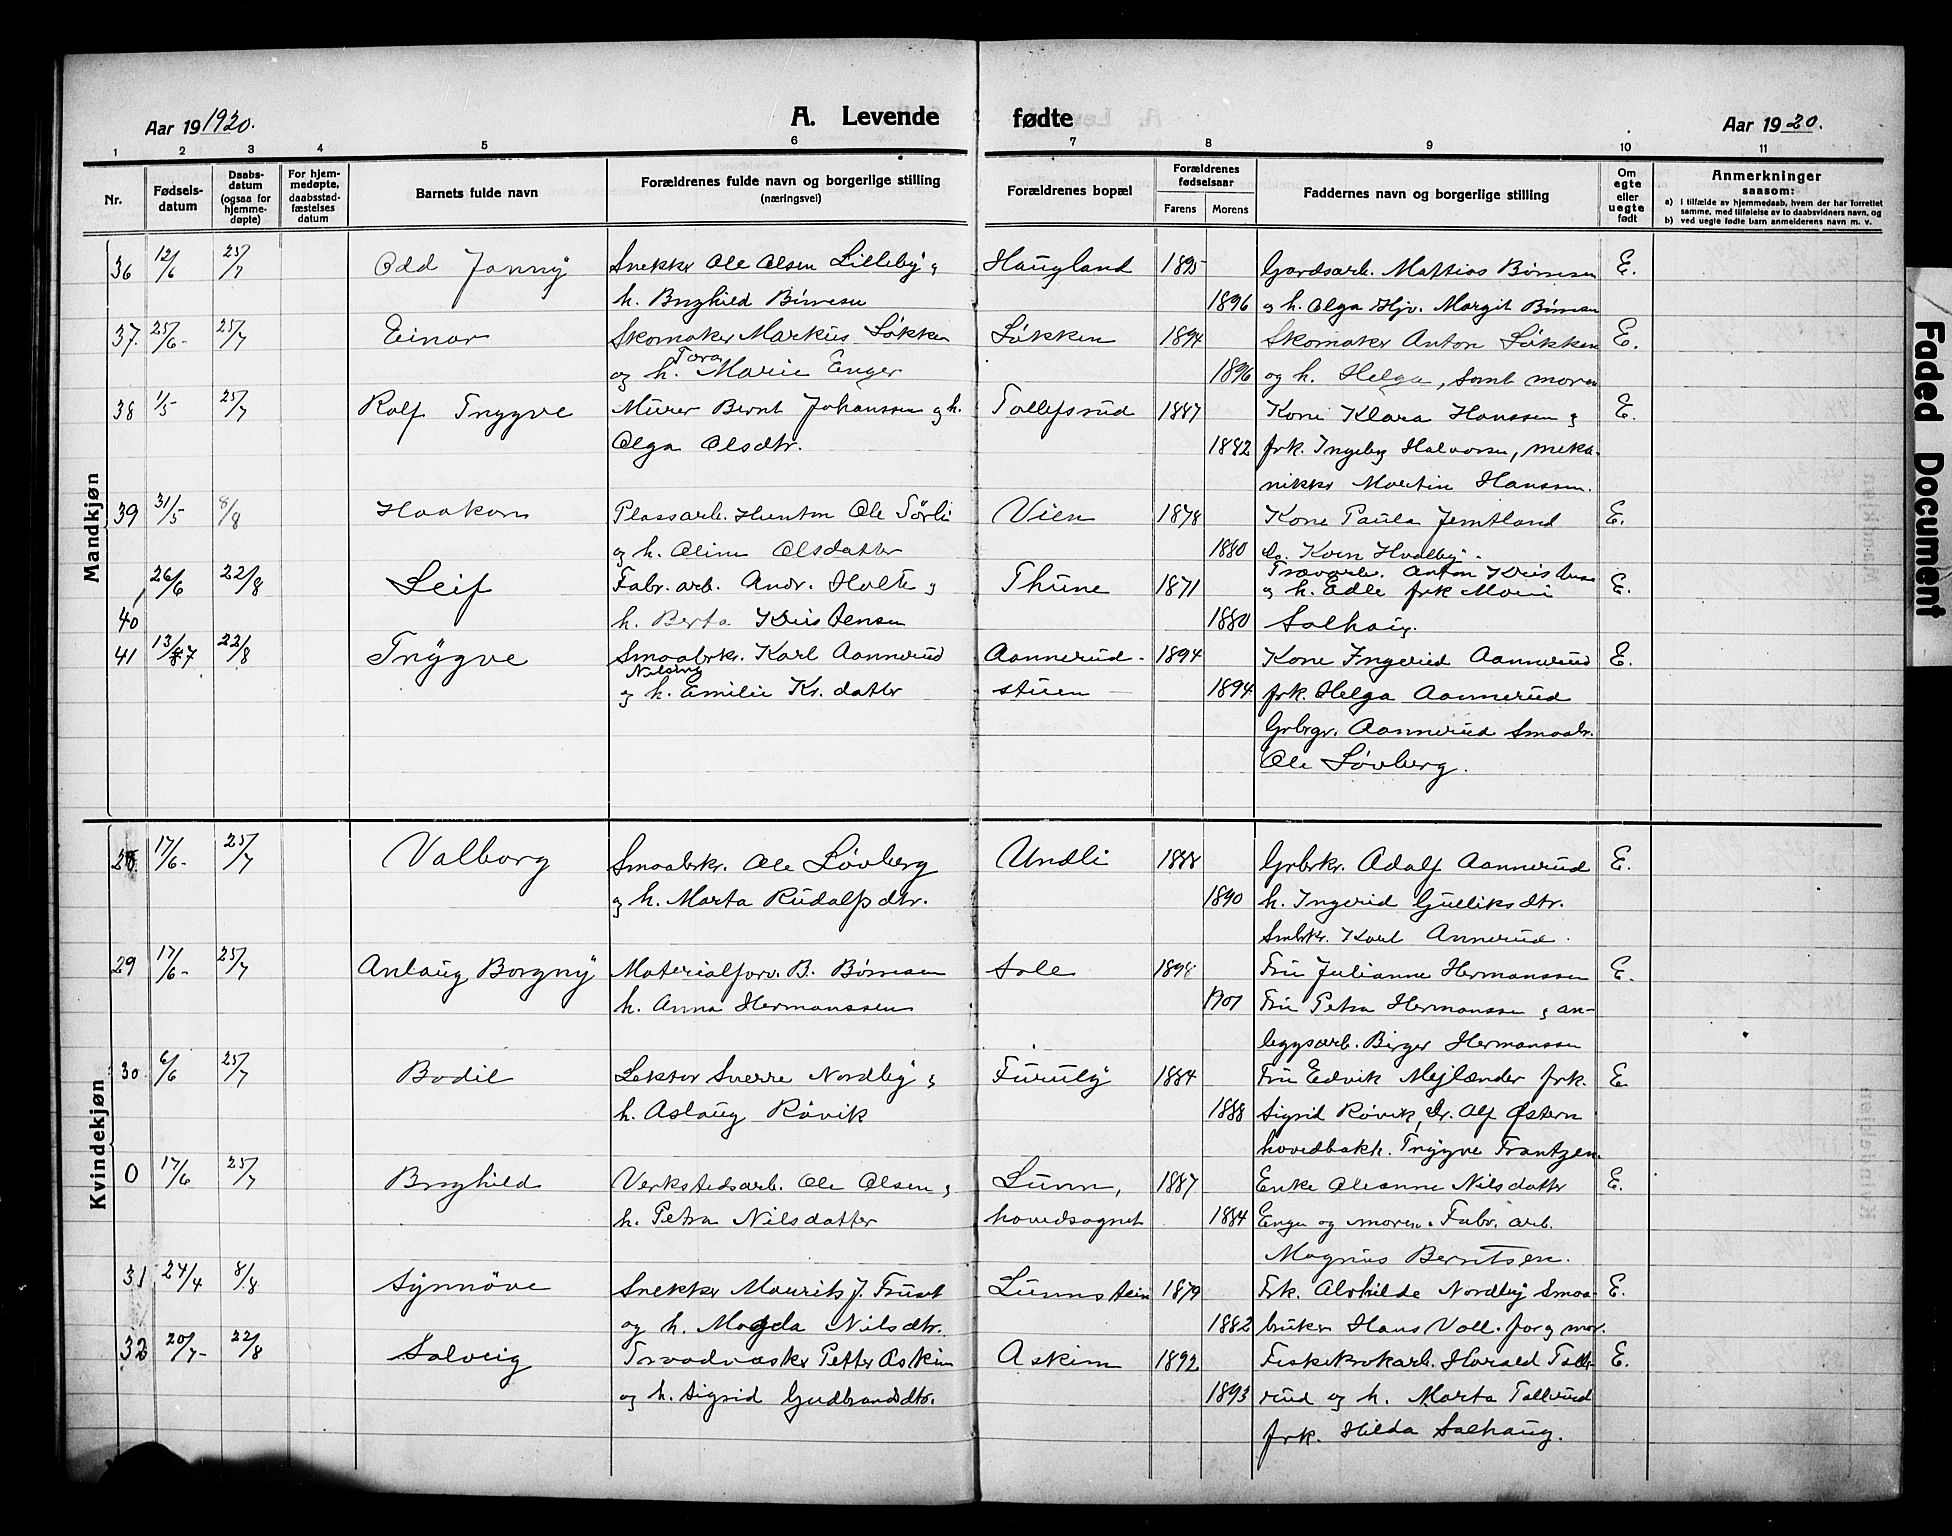 Aar 19 1920.
A. Levende fødte
Aar 1920.
1 2 3 4 5 6 7 8 9 10 11
Nr.
Fødsels-
datum
Daabs-
datum
(ogsaa for
hjemme-
døpte)
For hjem-
medøpte,
daabsstad-
fæstelses
datum
Barnets fulde navn
Forældrenes fulde navn og borgerlige stilling
(næringsvei)
Forældrenes bopæl
Forældrenes
fødselsaar
Farens Morens
Faddernes navn og borgerlige stilling
Om
egte
eller
uegte
født
Anmerkninger
saasom:
a) i tilfælde av hjemmedaab, hvem der har forrettet
samme, med tilføielse av to daabsvidners navn, og
b) ved uegte fødte barn anmelderens navn m. v.
Mandkjøn
36 12/6 25/7 Odd Jonny Snekker Ole Olsen Lilleby og Haugland 1895 Gardsarb. Mattias Børresen E.
h. Borghild Børresen 1896 og h. Olga Hjv. Margit Børresen
37. 25/6- 25/7 Einar Skomaker Markus Løkken Løkken 1894 Skomaker Anton Løkken E.
Tora
og h. Marie Enger 1896 og h. Helga, samt moren
38 1/5 25/7 Rolf Trygve Murer Bernt Johanssen og h. Tollefsrud 1887 Kone Klara Hanssen og E.
Olga Olsdtr. 1882 frk. Ingebg Halvorsen, meka-
nikker Martin Hanssen.
39 31/5 8/8 Haakon Plassarb. Hunton Ole Sørli Vien 1878 Kone Paula Jemtland E.
og h. Oline Olsdatter 1880 do. Karen Hvalby.
40 26/6 22/8 Leif Fabr. arb. Andr. Holte og Thune 1871 Trævarearb. Anton Kristensen
og h. Edle frk Marie E.
h. Berta Kristensen 1880 Solhaug.
41 13/7 22/8 Trygve Smaabrkr. Karl Aannerud Aannerud- 1894 Kone Ingerid Aannerud E.
og h. Emilie Kr. datter stuen 1894 frk. Helga Aannerud
Grbrgr. Aannerud Smaabr.
Ole Løvberg.
Kvindekjøn
28. 17/6- 25/7 Valborg Smaabrkr. Ole Løvberg Undli 1888 Grbrkr. Adolf Aannerud E.
og h. Marta Rudolfsdtr. 1890 h. Ingerid Gulliksdtr.
Smbrkr. Karl Annerud.
29 17/6- 25/7 Anlaug Borgny Materialforv. B. Børresen Sole 1894 Fru Julianne Hermanssen E.
h. Anna Hermanssen 1901 Fru Petra Hermanssen og an-
leggsarb. Birger Hermanssen
30 6/6 25/7 Bodil Lektor Sverre Nordby og Furuly 1884 Fru Edvik Mejlænder frk. E.
h. Aslaug Røvik 1888 Sigrid Røvik, Dr. Alf Østern
hovedbokh. Trygve Frantzen.
0 17/6 25/7 Borghild Verkstedsarb. Ole Olsen og Lunn, 1887 Enke Oleanne Nilsdatter E.
h. Petra Nilsdatter hovedsognet 1884 Enger og moren. Fabr. arb.
Magnus Berntsen.
31 24/4 8/8 Synnöve Snekker Maurits J. Furst Lunnstein 1879 Frk. Alvhilde Nordby Smaa- E.
og h. Magda Nilsdtr. 1882 bruker Hans Voll. far og mor.
32 20/7- 22/8 Solveig Traadvasker Petter Askim Askim 1892 Fiskekrokarb. Harald Tolle- E.
og h. Sigrid Gudbrandsdtr. 1893 rud og h. Marta Tollerud
frk. Hilda Solhaug.
Faded Document